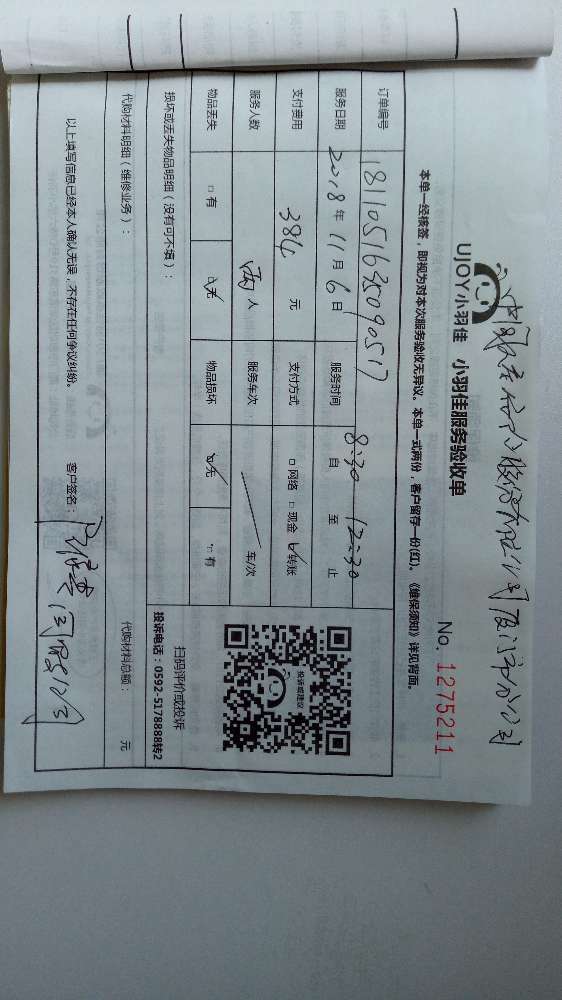 UJOY小羽佳 小羽佳服务验收单
No. 1275211
本单一经核签，即视为对本次服务验收无异议。本单一式两份，客户留存一份(红)。《维保须知》详见背面。
订单编号 1811051635090517
服务日期 2018年 11月 6日 服务时间 8:30 自 至 12:30 止
支付费用 384 元 支付方式 □网络 □现金 ☑转账
服务人数 两人 服务车次 车/次
物品丢失 □有 ☑无 物品损坏 ☑无 □有
投诉或建议
扫码评价或投诉
投诉电话：0592-5178888转2
损坏或丢失物品明细（没有可不填）：
代购材料明细（维修业务）： 代购材料总额： 元
以上填写信息已经本人确认无误，不存在任何争议纠纷。 客户签名：